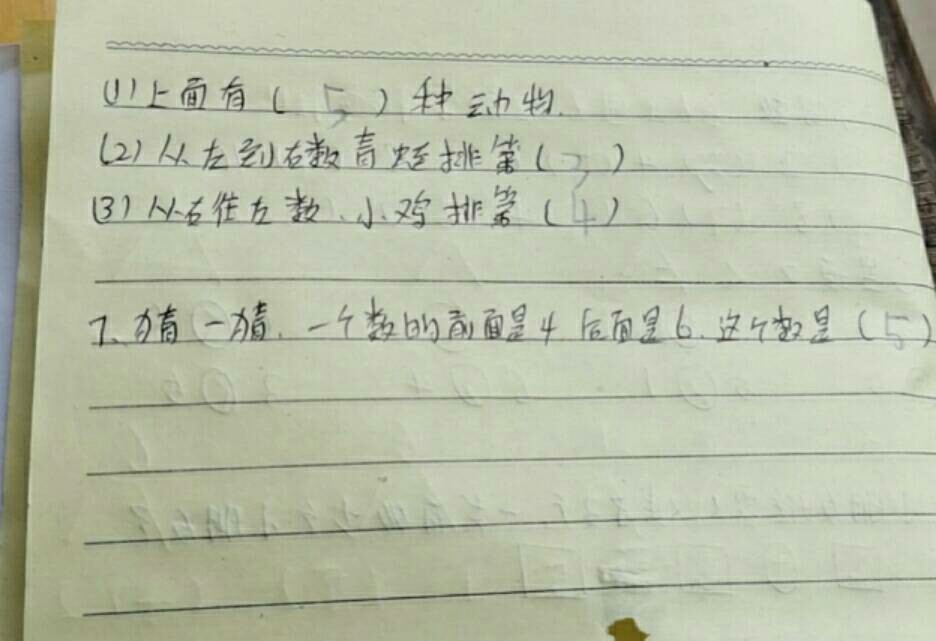 (1)上面有(5)种动物.
(2)从左到右数青蛙排第( )
(3)从右往左数、小鸡排第(4)
7、猜一猜.一个数的前面是4后面是6.这个数是(5)